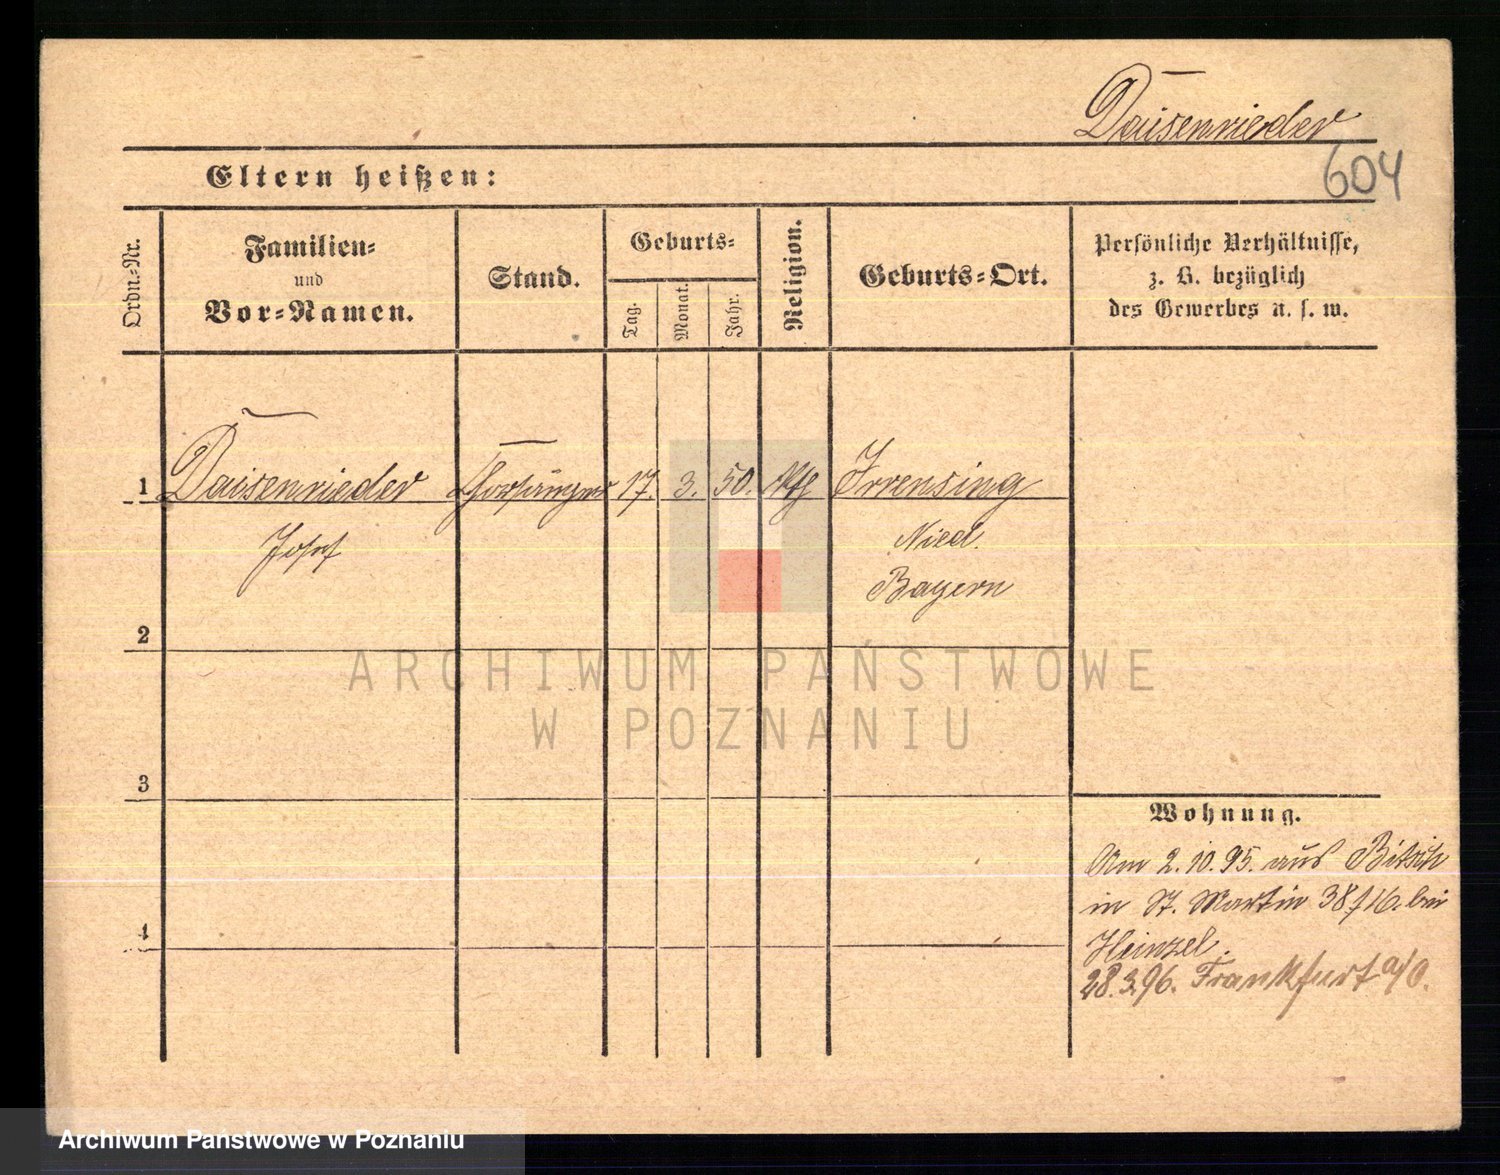 Daisenrieder
Eltern heißen:
604
Ordn.-Nr.
Familien-
und
Vor-Namen.
Stand.
Geburts-
Tag.
Monat.
Jahr.
Religion.
Geburts-Ort.
Persönliche Verhältnisse,
z. B. bezüglich
des Gewerbes u. s. w.
1 Daisenrieder 17. 3. 50. Kth Irrensing
Josef Nied.
Bayern
2
ARCHIWUM PAŃSTWOWE
W POZNANIU
3
Wohnung.
Am 2.10.95. aus Bitsch
in St. Martin 38/16. bei
Heinzel.
28.3.96. Frankfurt a/O.
4
Archiwum Państwowe w Poznaniu